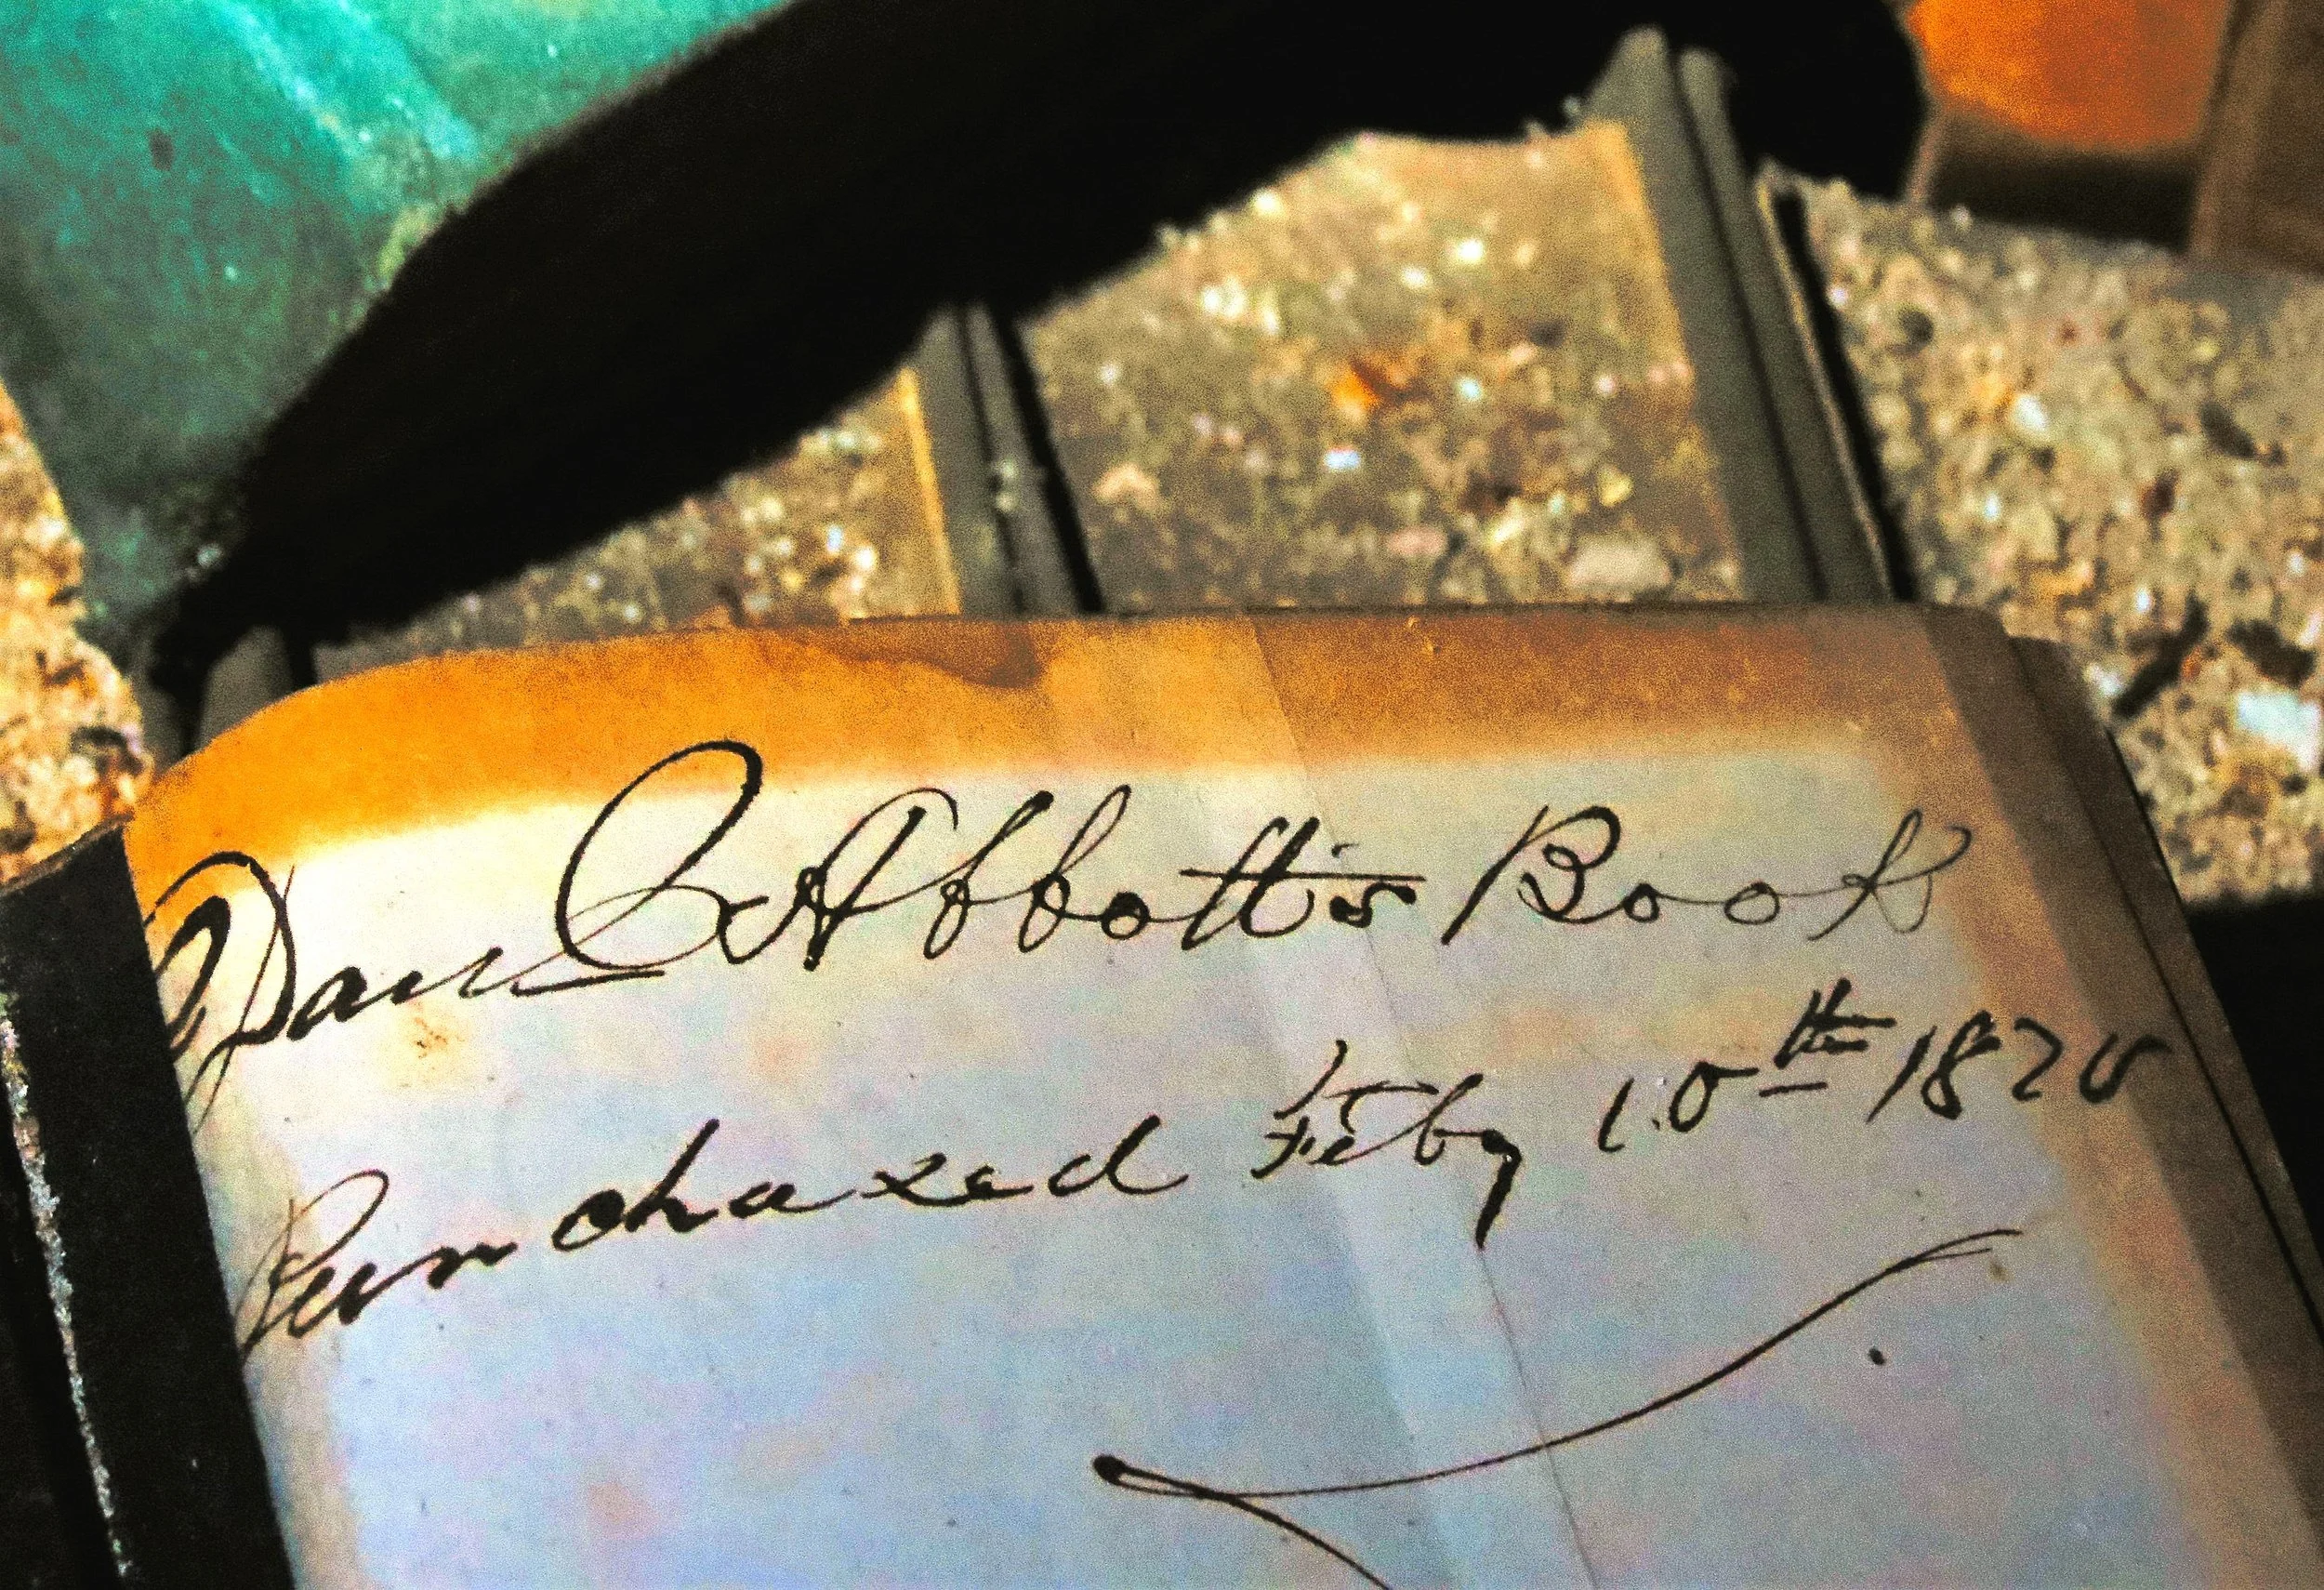 Danl C. Abbott's Book
Purchased Feby 10th 1820